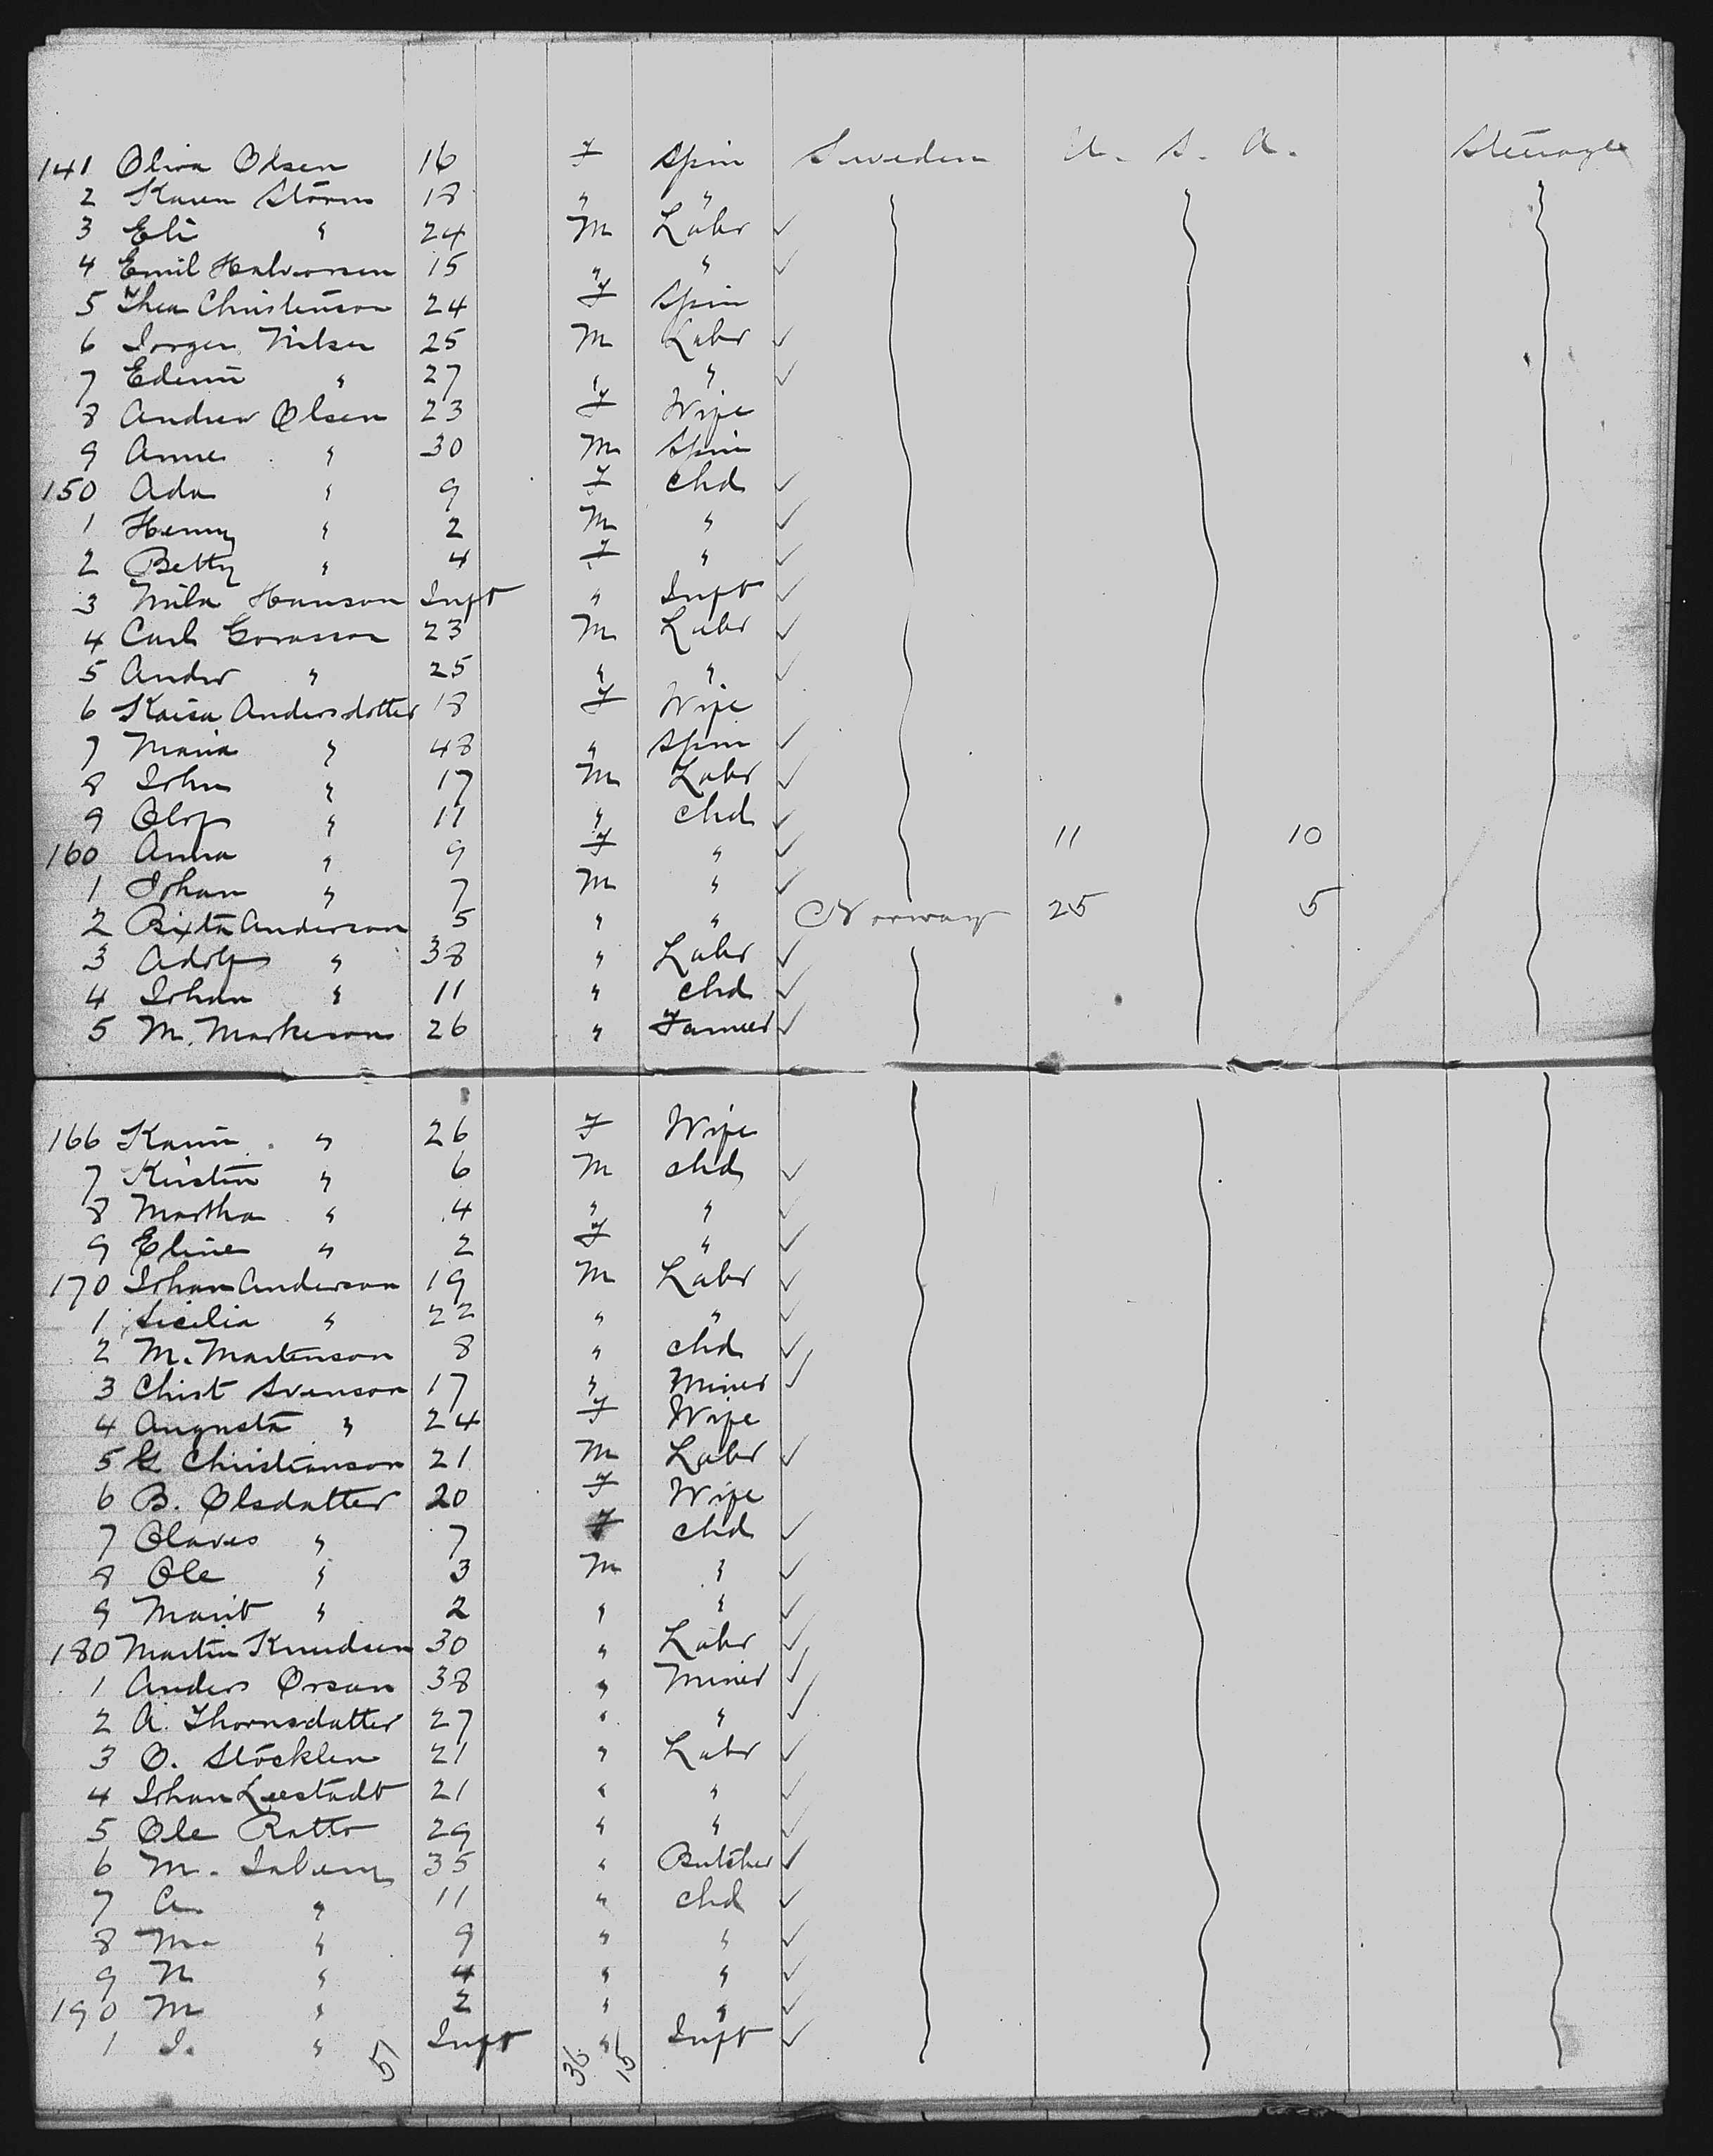 141 Oliva Olsen 16 F Spin Sweden U. S. A. Steerage
2 Karen Storm 18 " "
3 Eli " 24 M Labr ✓
4 Emil Halvorsen 15 " " ✓
5 Thea Christenson 24 F Spin
6 Jorgen Nilsen 25 M Labr ✓
7 Edwin " 27 " " ✓
8 Andrew Olsen 23 F Wife
9 Anne " 30 M Spin
150 Ada " 9 F Chd ✓
1 Henny " 2 M " ✓
2 Betty " 4 F " ✓
3 Hanson Inft " Inft ✓
4 Carl Gorasson 23 M Labr ✓
5 Ander " 25 " " ✓
6 Kaisa Andersdotter 18 F Wife
7 Maria " 48 " Spin ✓
8 John " 17 M Labr ✓
9 Olof " 11 " Chd ✓
160 Anna " 9 F " ✓ 11 10
1 Johan " 7 M " ✓
2 Anderson 5 " " Norway 25 5
3 Adolf " 38 " Labr ✓
4 Johan " 11 " Chd ✓
5 M. Markeson 26 " Farmer ✓
166 Karin " 26 F Wife
7 Kirsten " 6 M Chd ✓
8 Martha " 4 " " ✓
9 Eline " 2 F " ✓
170 Johan Anderson 19 M Labr ✓
1 Sicilia " 22 " " ✓
2 M. Martenson 8 " Chd ✓
3 Christ Svenson 17 " Miner ✓
4 Augusta " 24 F Wife
5 G Christianson 21 M Labr ✓
6 B. Olsdatter 20 F Wife
7 Olaves " 7 F Chd ✓
8 Ole " 3 M " ✓
9 Marit " 2 " " ✓
180 Martin Knudsen 30 " Labr ✓
1 Anders Orsan 38 " Miner ✓
2 A. Thornsdatter 27 " " ✓
3 O. Stocklen 21 " Labr ✓
4 Johan Leestadt 21 " " ✓
5 Ole Ratto 29 " " ✓
6 M. 35 " Butcher ✓
7 A. " 11 " Chd ✓
8 M. " 9 " " ✓
9 N " 4 " " ✓
190 M " 2 " " ✓
1 I. " Inft " Inft ✓
51 36 15